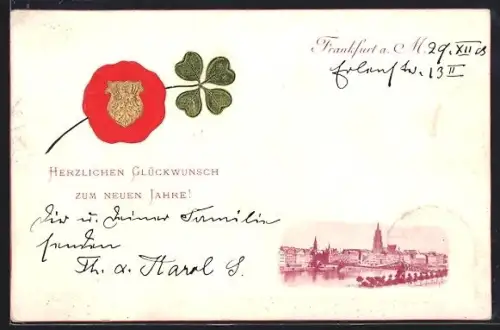 Frankfurt a. M. 29. XII 03
13 II
HERZLICHEN GLÜCKWUNSCH
ZUM NEUEN JAHRE!
Dir u. Deiner Familie
senden
Th. a. Karol S.